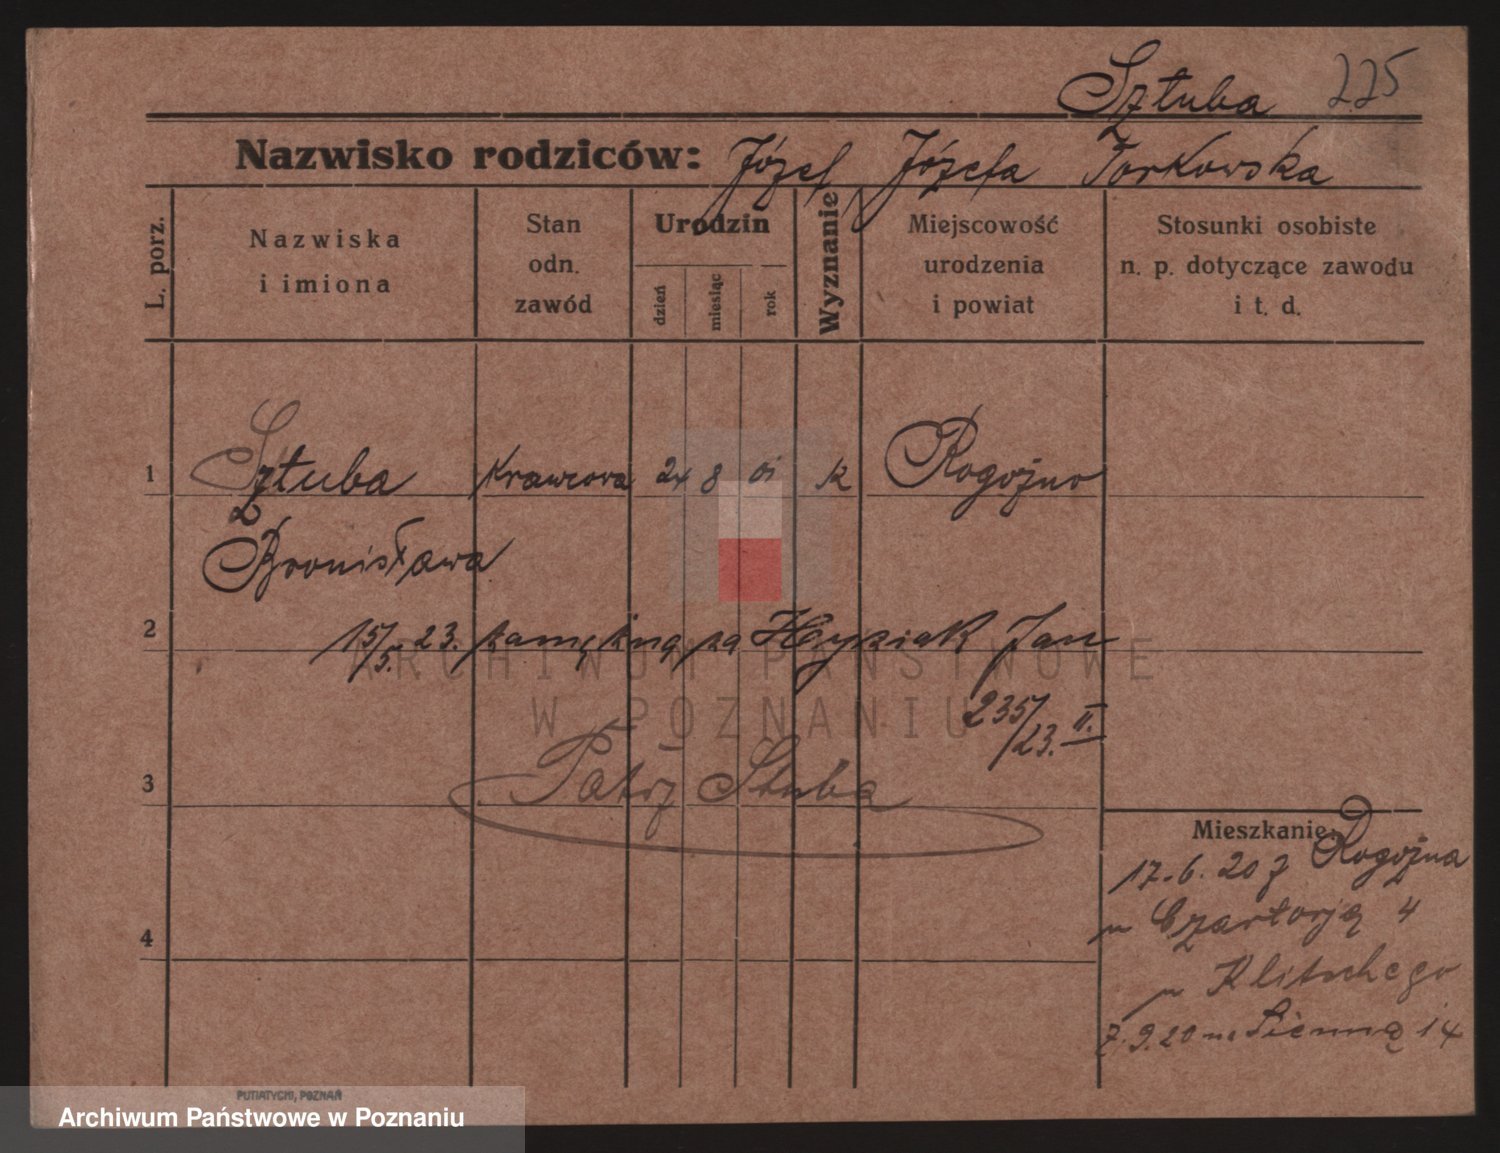 Sztuba 225
Nazwisko rodziców: Józef Józefa Torkowska
L. porz.
Nazwiska
i imiona
Stan
odn.
zawód
Urodzin
dzień
miesiąc
rok
Wyznanie
Miejscowość
urodzenia
i powiat
Stosunki osobiste
n. p. dotyczące zawodu
i t. d.
1 Sztuba Krawcowa 24 8 01 k Rogoźno
Bronisława
2 15/5. 23. zamężna za Hyziak Jan
235/23. II.
3 Patrz Stuba
Mieszkanie:
17.6.20 z Rogoźna
u Czartorja 4
u Klitschego
7.9.20 na Sienną 14
4
ARCHIWUM PAŃSTWOWE
W POZNANIU
PUTIATYCKI, POZNAŃ
Archiwum Państwowe w Poznaniu